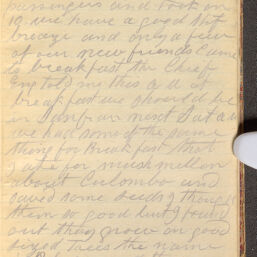 passengers and took on
19 we have a good stif
breaze and only a few
of our new friends came
to breakfast the Chief
Eng told me this a m at
breakfast we should be
in San fran next Sat a m
we had some of the same
thing for Breakfast that
I ate for mushmellon
about Colombo and
saved some seeds I thought
them so good but I found
out they grow on good
sized Trees the name